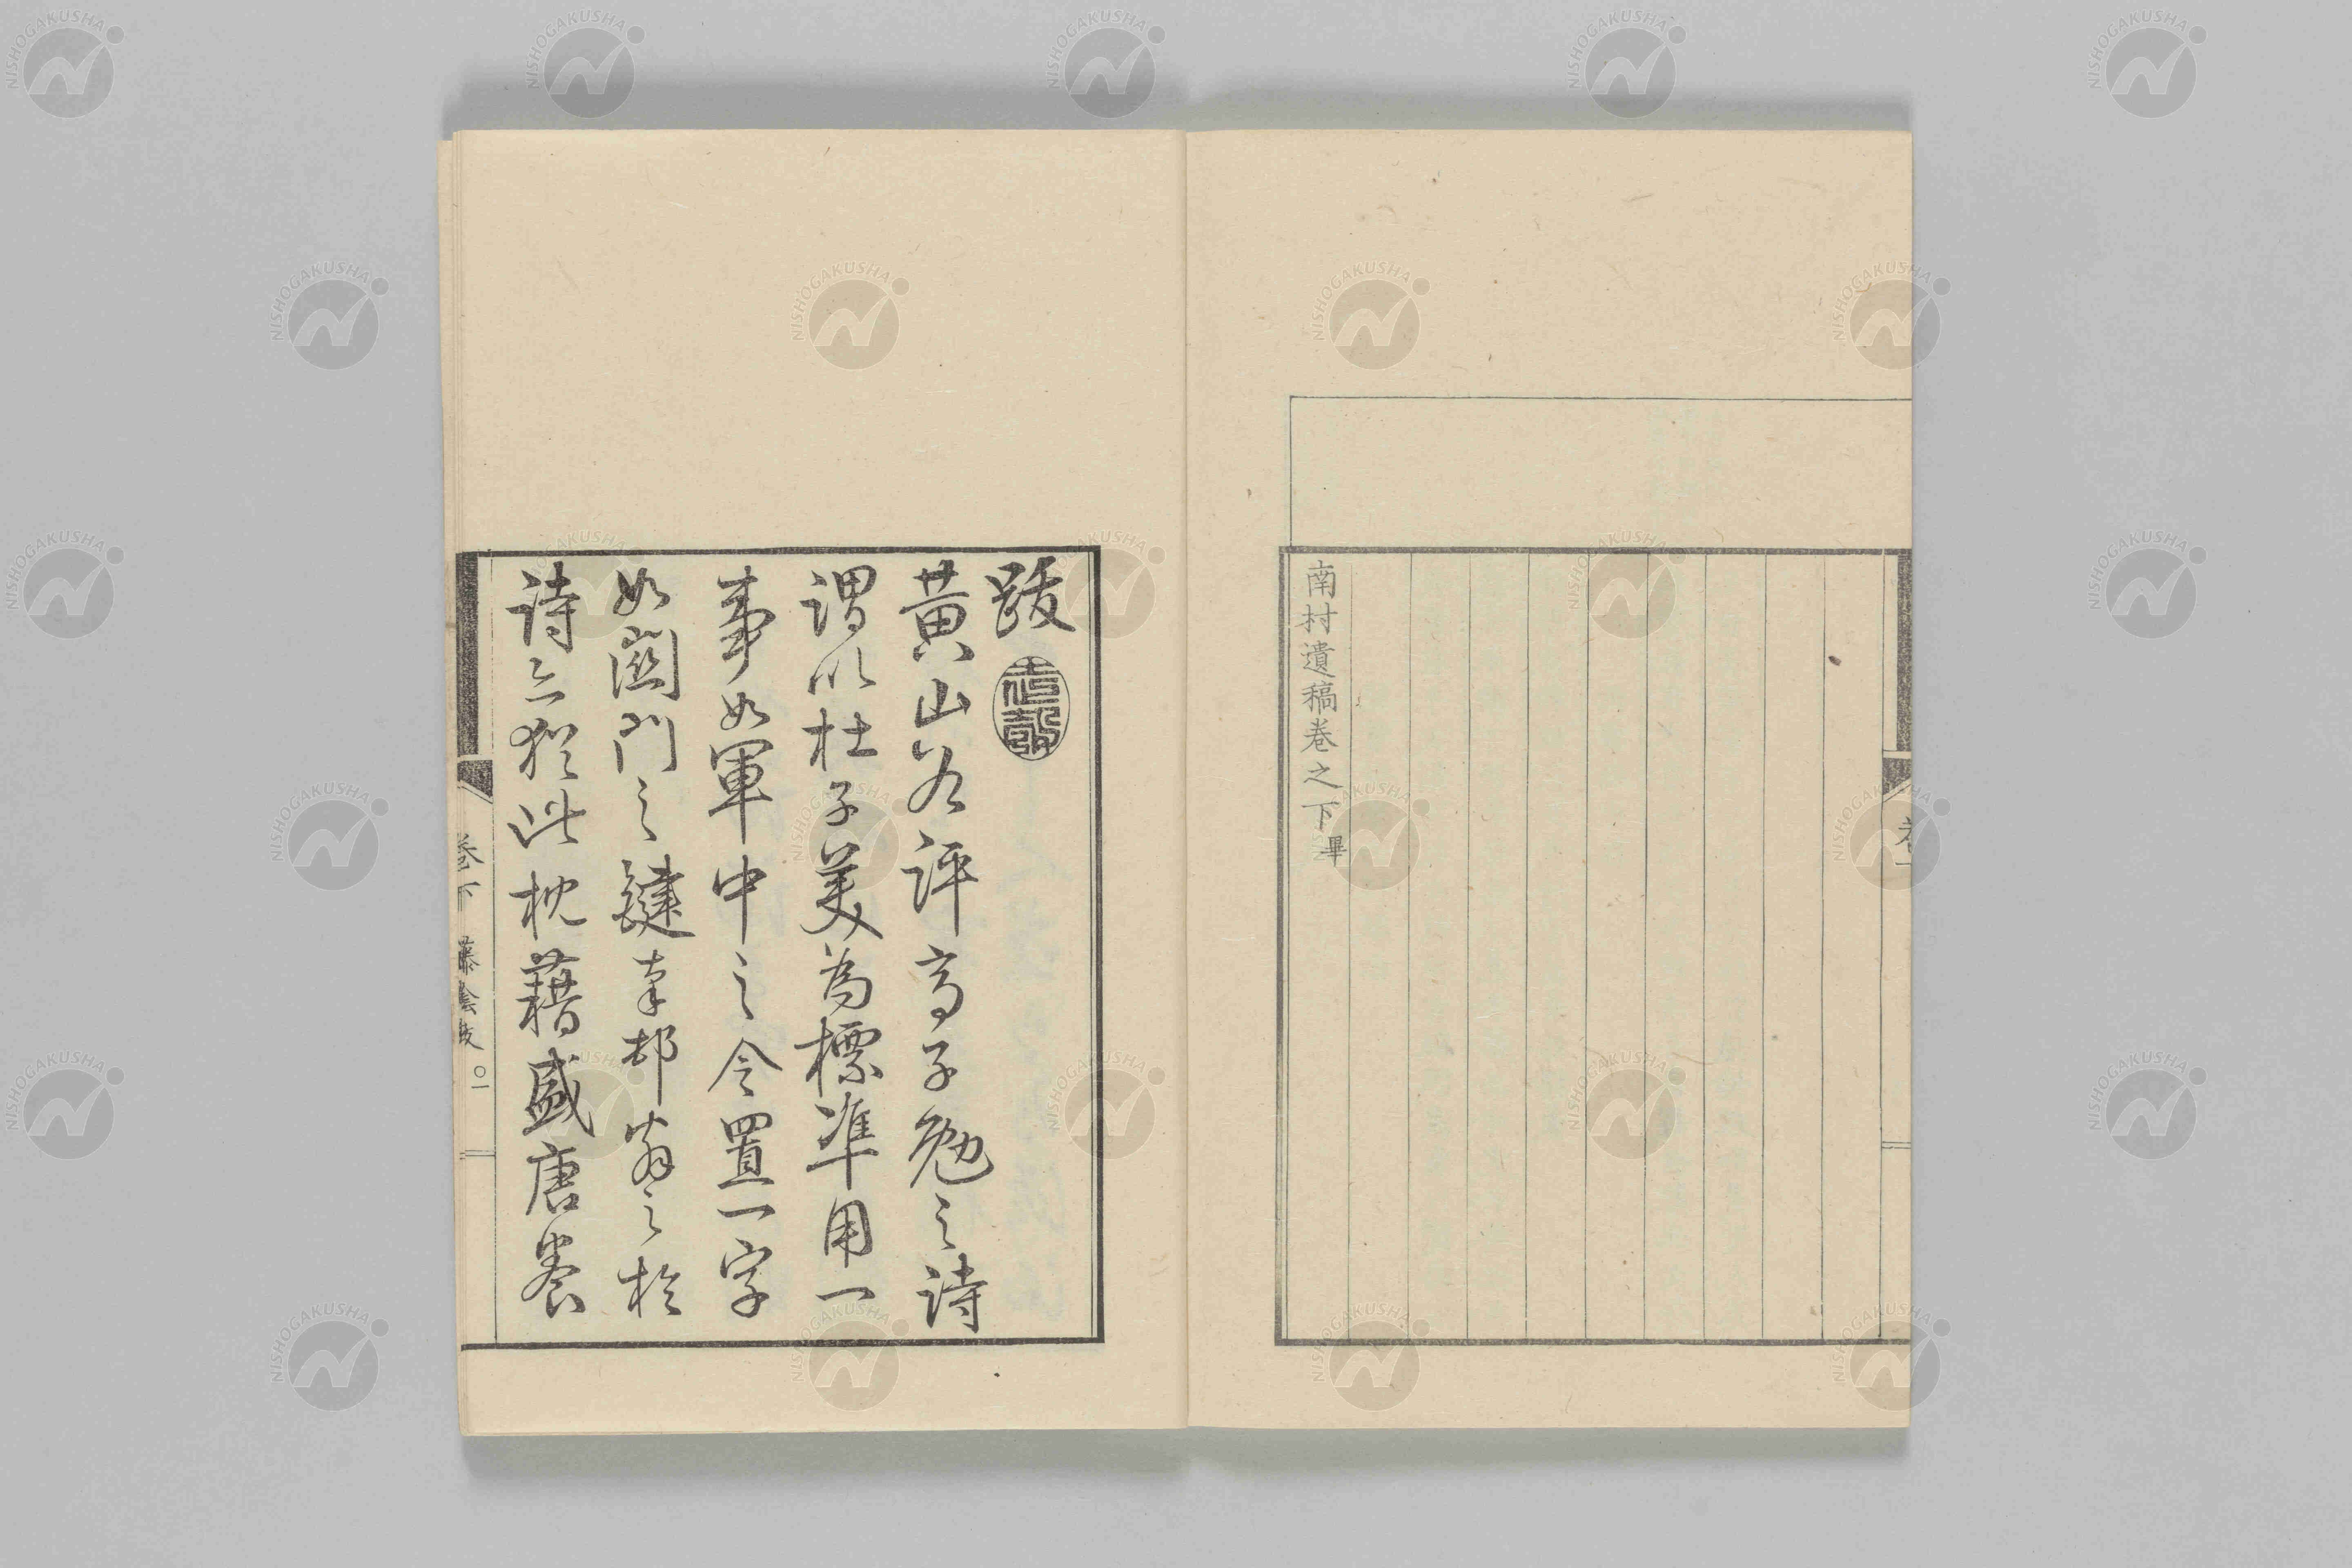 南村遺稿卷之下畢
跋
黃山谷評高子勉之詩
謂以杜子美為標準用一
事如軍中之令置一字
如關門之鍵南邨翁之於
詩亦猶此枕藉盛唐養
卷下
藤陰跋
〇一
NISHOGAKUSHA